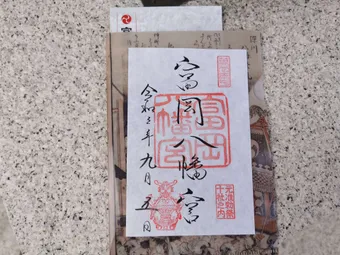 富岡八幡宮
令和三年九月五日
富岡八幡宮
元准勅祭
十社之内